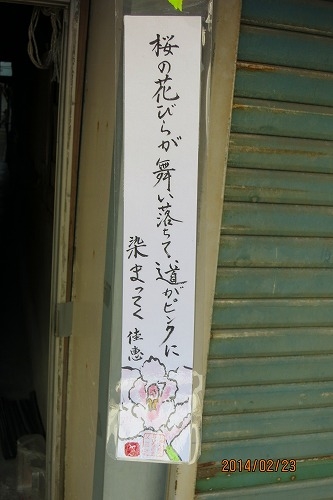 桜の花びらが舞い落ちて、道がピンクに
染まってく
佳恵
2014/02/23